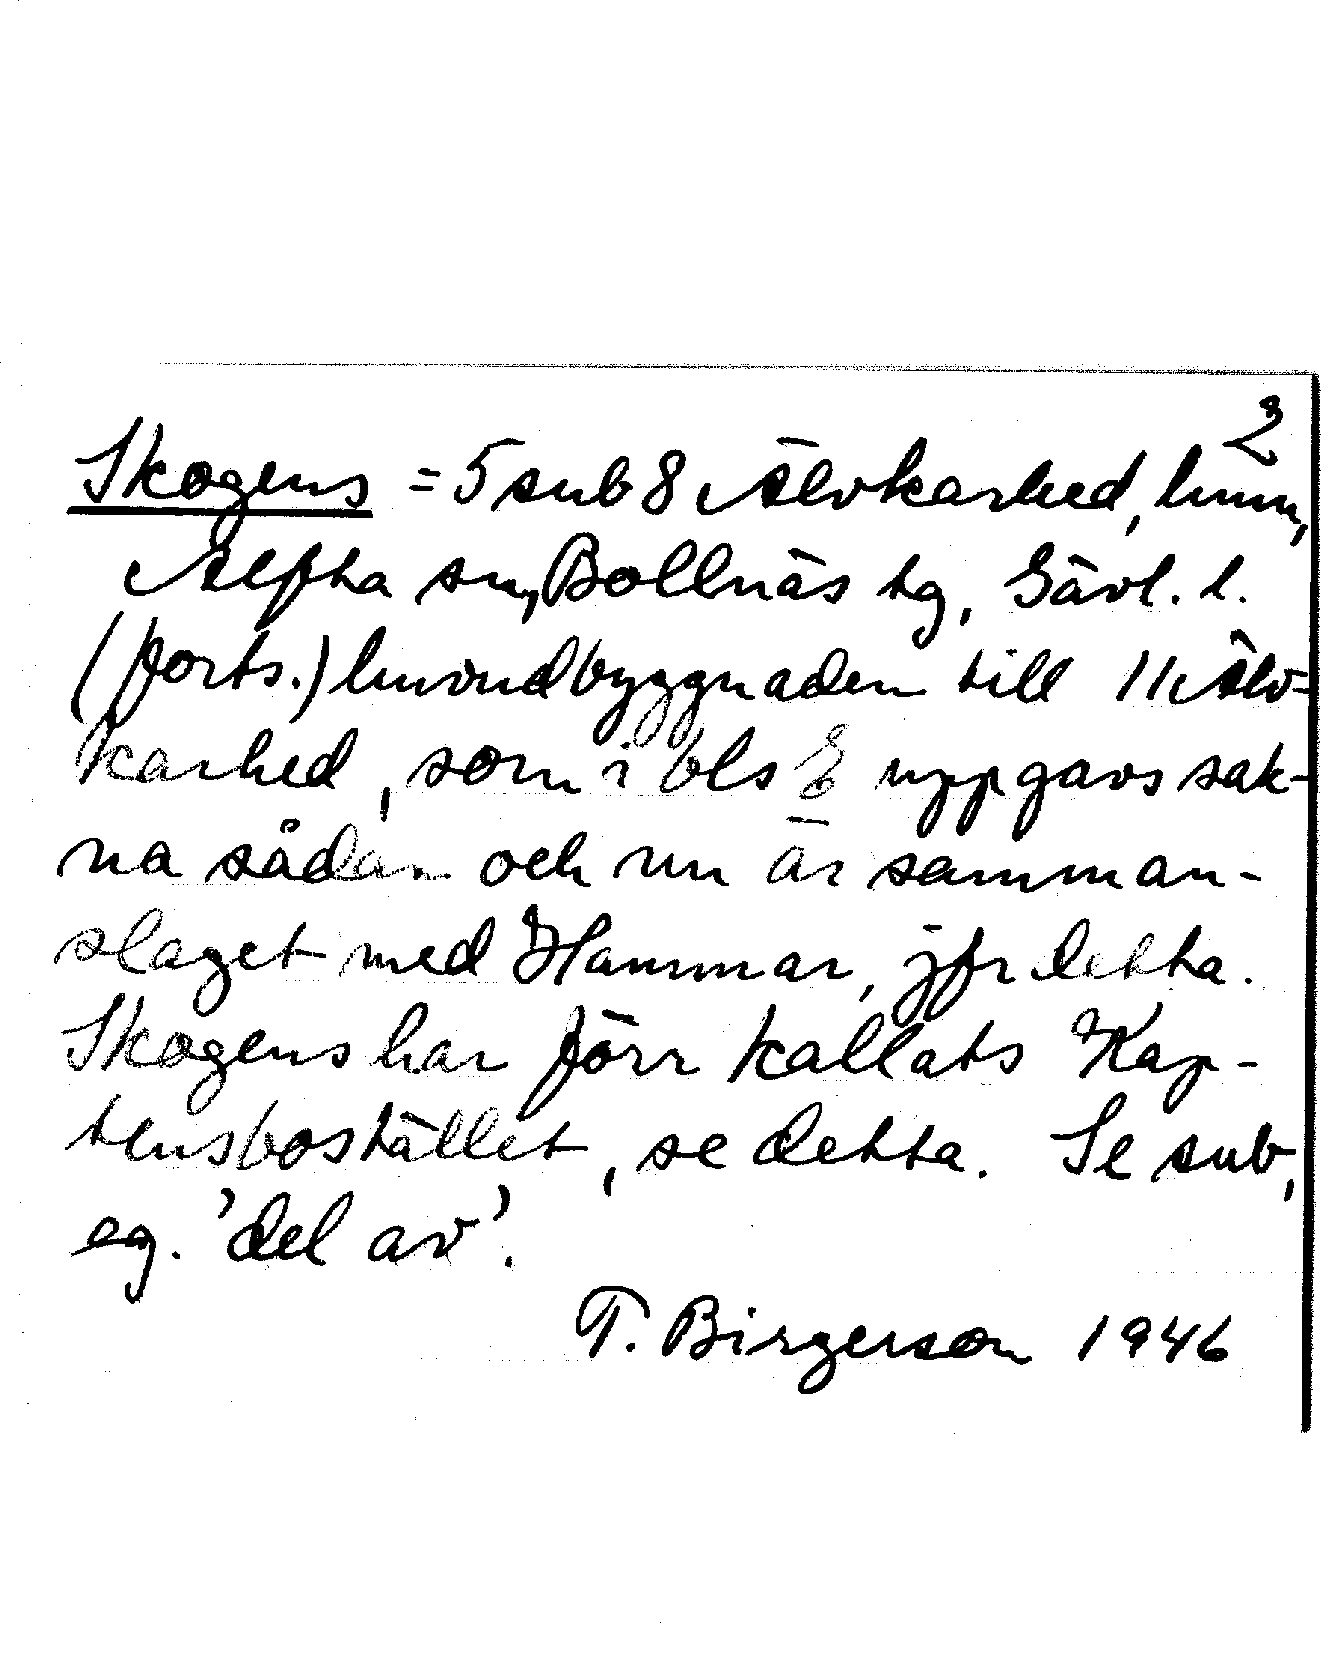 2
Skogens = 5 sub 8 Älvkarhed, hmn,
Alfta sn, Bollnäs tg, Gävl. l.
(forts.) huvudbyggnaden till 11 Älv-
karhed, som i bls E uppgavs sak-
na sådan och nu är samman-
slaget med Hammar, jfr detta.
Skogens har förr kallats Kap-
tensbostället, se detta. Se sub,
eg. 'del av'.
T. Birgerson 1946